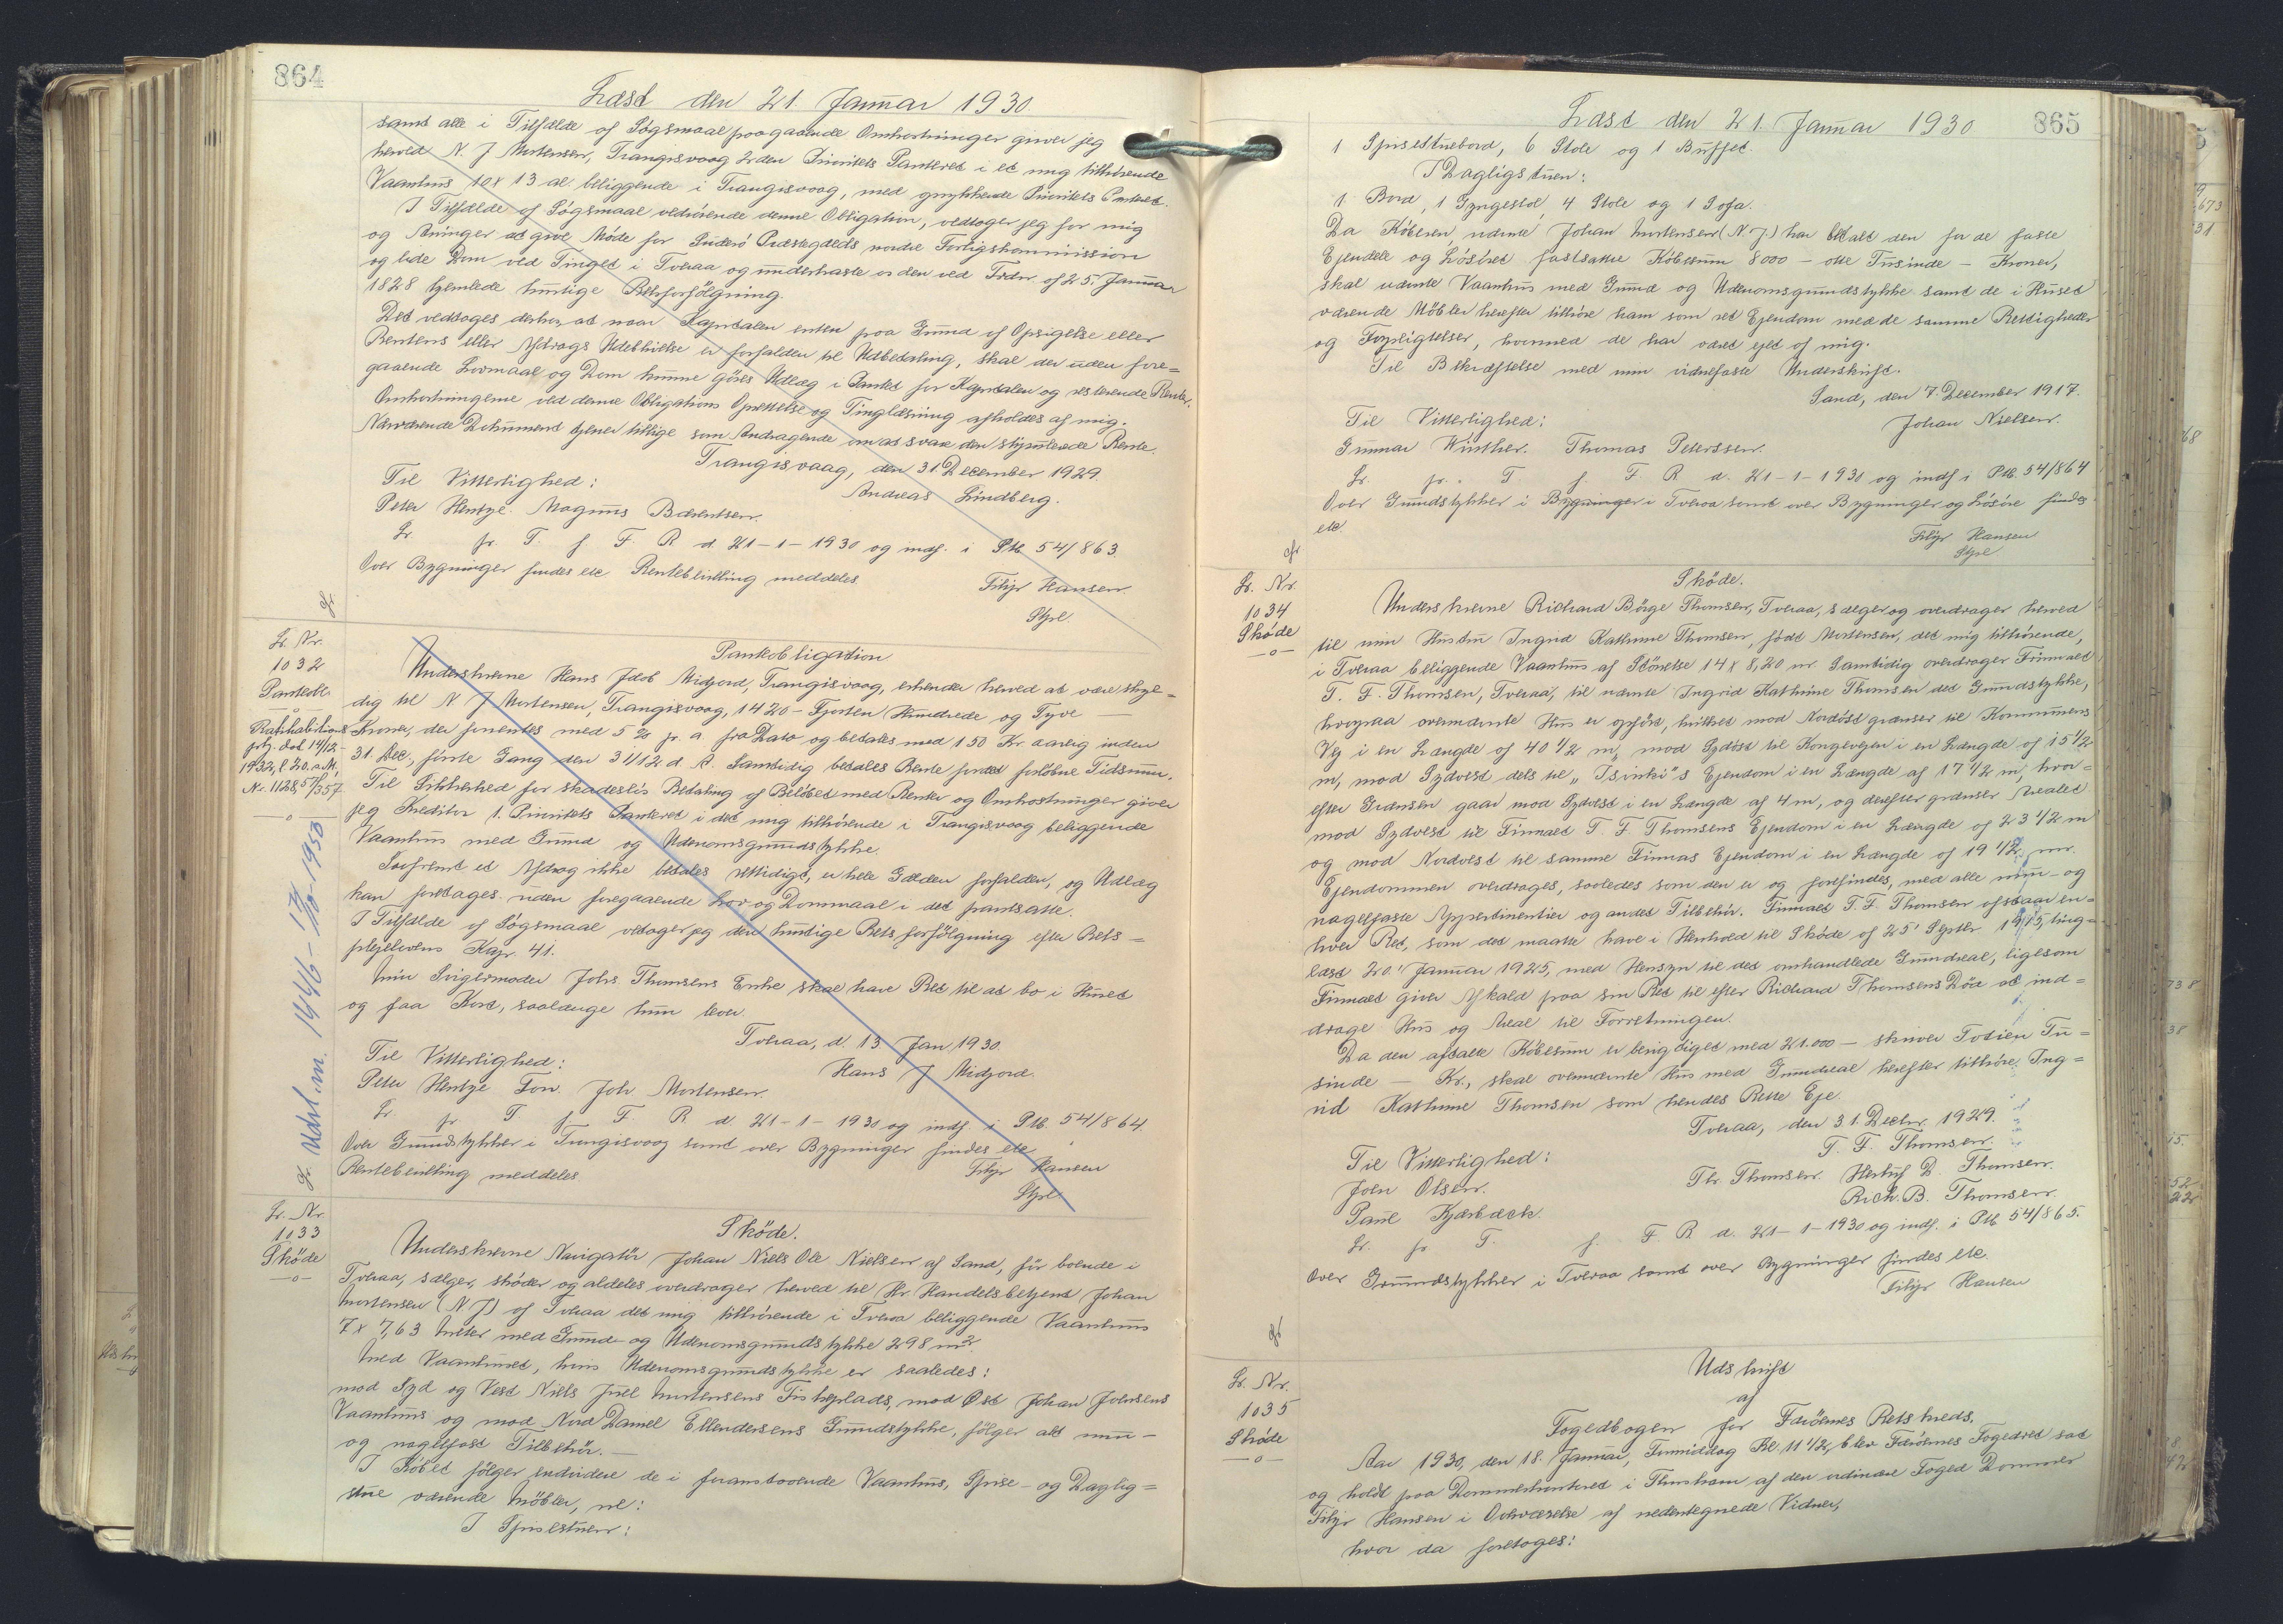 864
Læst den 21. Januar 1930.
samt alle i Tilfælde af Søgsmaal paagaaende Omkostninger giver jeg
herved N. J. Mortensen, Trangisvaag 2den Prioritets Panteret i et mig tilhørende
Vaanhus 10 x 13 al. beliggende i Trangisvaag, med oprykkende Prioritets Panteret.
I Tilfælde af Søgsmaal vedrørende denne Obligation, vedtager jeg for mig
og Arvinger at give Møde for Suderø Præstegælds nordre Forligskommission
og lide Dom ved Tinget i Tveraa og underkaste os den ved Frdn. af 25. Januar
1828 hjemlede hurtige Retsforfølgning.
Det vedtages derhos, at naar Kapitalen enten paa Grund af Opsigelse eller
Rentens eller Afdrags Udeblivelse er forfalden til Udbetaling, skal der uden fore=
gaaende Lovmaal og Dom kunne gøres Udlæg i Pantet for Kapitalen og resterende Renter.
Omkostningerne ved denne Obligations Oprettelse og Tinglæsning afholdes af mig.
Nærværende Dokument tjener tillige som Andragende om at svare den stipulerede Rente.
Trangisvaag, den 31 December 1929.
Til Vitterlighed:
Andreas Lindberg.
Peter Hentze. Magnus Bærentsen.
Lr. fr. T. f. F. R. d. 21-1-1930 og indf. i Ptb. 54/863.
Over Bygninger findes etc Rentebevilling meddeles.
Filip Hansen.
Stpl.
Lr. Nr.
1032
Panteobl.
—o—
Ratihabitions
ptg. dat. 14/12-
1932, l. 20. s. M.
Nr. 1128, 57/357
—o—
Udsl. m. 1446 - 17/10-1950
Panteobligation
Underskrevne Hans Jakob Midjord, Trangisvaag, erkender herved at være skyl=
dig til N. J. Mortensen, Trangisvaag, 1420 - Fjorten Hundrede og Tyve —
Kroner, der forrentes med 5 % p. a. fra Dato og betales med 150 Kr. aarlig inden
31 Dec., første Gang den 31/12 d. A. Samtidig betales Rente for det forløbne Tidsrum.
Til Sikkerhed for skadesløs Betaling af Beløbet med Renter og Omkostninger giver
jeg Kreditor 1. Prioritets Panteret i det mig tilhørende i Trangisvaag beliggende
Vaanhus med Grund og Udenomsgrundstykke.
Saafremt et Afdrag ikke betales rettidigt, er hele Gælden forfalden, og Udlæg
kan foretages uden foregaaende Lov og Dommaal i det pantsatte.
I Tilfælde af Søgsmaal vedtager jeg den hurtige Retsforfølgning efter Rets=
plejelovens Kap. 41.
Min Svigermoder Johs. Thomsens Enke skal have Ret til at bo i Huset
og faa Kost, saalænge hun lever.
Tveraa, d. 13 Jan. 1930.
Til Vitterlighed:
Hans J Midjord.
Peter Hentze Fon. Joh Mortensen.
Lr. fr. T. f. F. R. d. 21-1-1930 og indf. i Ptb. 54/864.
Over Grundstykker i Trangisvaag samt over Bygninger findes etc
Rentebevilling meddeles.
Filip Hansen
Stpl
Lr. Nr.
1033
Skøde
—o—
Skøde.
Underskrevne Navigatør Johan Niels Ole Nielsen af Sand, før boende i
Tveraa, sælger, skøder og aldeles overdrager herved til Hr. Handelsbetjent Johan
Mortensen (N. J.) af Tveraa det mig tilhørende i Tveraa beliggende Vaanhus
7 x 7,63 Meter med Grund- og Udenomsgrundstykke 298 m².
Med Vaanhuset, hvis Udenomsgrundstykke er saaledes:
mod Syd og Vest Niels Juel Mortensens Fiskeplads, mod Øst Johan Johnsens
Vaanhus og mod Nord Daniel Ellendersens Grundstykke, følger alt mur-
og nagelfast Tilbehør. —
I Købet følger endvidere de i foranstaaende Vaanhus, Spise- og Daglig=
stue værende Møbler, nl:
I Spisestuen:
865
Læst den 21. Januar 1930
1 Spisestuebord, 6 Stole og 1 Buffet.
I Dagligstuen:
1 Bord, 1 Gyngestol, 4 Stole og 1 Sofa.
Da Køberen, nævnte Johan Mortensen (N. J.) har betalt den for de faste
Ejendele og Løsøret fastsatte Købesum 8000 - otte Tusinde - Kroner,
skal nævnte Vaanhus med Grund og Udenomsgrundstykke samt de i Huset
værende Møbler herefter tilhøre ham som ret Ejendom med de samme Rettigheder
og Forpligtelser, hvormed de har været ejet af mig.
Til Bekræftelse med min vidnefaste Underskrift.
Sand, den 7. December 1917.
Til Vitterlighed:
Johan Nielsen.
Gunnar Winther. Thomas Peterssen.
Lr. fr. T. f. F. R. d. 21-1-1930 og indf i Ptb. 54/864
Over Grundstykker i Bygninger i Tveraa samt over Bygninger og Løsøre findes
etc
Filip Hansen
Stpl
Lr. Nr.
1034
Skøde
—o—
Skøde.
Underskrevne Richard Børge Thomsen, Tveraa, sælger og overdrager herved
til min Hustru Ingrid Kathrine Thomsen, født Mortensen, det mig tilhørende,
i Tveraa beliggende Vaanhus af Størrelse 14 x 8,20 m. Samtidig overdrager Firmaet
T. F. Thomsen, Tveraa, til nævnte Ingrid Kathrine Thomsen det Grundstykke,
hvorpaa ovennævnte Hus er opført, hvilket mod Nordøst grænser til Kommunens
Vej i en Længde af 40 1/2 m., mod Sydøst til Kongevejen i en Længde af 15 1/2
m, mod Sydvest dels til „Isvirki"s Ejendom i en Længde af 17 1/2 m, hvor=
efter Grænsen gaar mod Sydøst i en Længde af 4 m, og derefter grænser Arealet
mod Sydvest til Firmaet T. F Thomsens Ejendom i en Længde af 23 1/2 m
og mod Nordvest til samme Firmas Ejendom i en Længde af 19 1/2 m.
Ejendommen overdrages, saaledes som den er og forefindes, med alle mur- og
nagelfaste Appertinentier og andet Tilbehør. Firmaet T. F. Thomsen afstaar en=
hver Ret, som det maatte have i Henhold til Skøde af 25' Septbr 1915, ting=
læst 20.' Januar 1925, med Hensyn til det omhandlede Grundareal, ligesom
Firmaet giver Afkald paa sin Ret til efter Richard Thomsens Død at ind=
drage Hus og Areal til Forretningen.
Da den aftalte Købesum er berigtiget med 21.000 - skriver Totien Tu=
sinde - Kr., skal ovennævnte Hus med Grundareal herefter tilhøre Ing=
rid Kathrine Thomsen som hendes Rette Eje.
Tveraa, den 31 Decbr. 1929.
T. F. Thomsen.
Til Vitterlighed:
Thr. Thomsen. Herluf D. Thomsen.
Joen Olsen.
Rich. B. Thomsen.
Paul Kjærbæck.
Lr. fr. T. f. F. R. d. 21-1-1930 og indf. i Ptb 54/865.
Over Grundstykker i Tveraa samt over Bygninger findes etc.
Filip Hansen
Lr. Nr.
1035
Skøde
—o—
Udskrift
af
Fogedbogen for Færøernes Retskreds.
Aar 1930, den 18. Januar, Formiddag Kl. 11 1/2, blev Færøernes Fogedret sat
og holdt paa Dommerkontoret i Thorshavn af den ordinære Foged Dommer
Filip Hansen i Overværelse af nedentegnede Vidner,
hvor da foretoges: